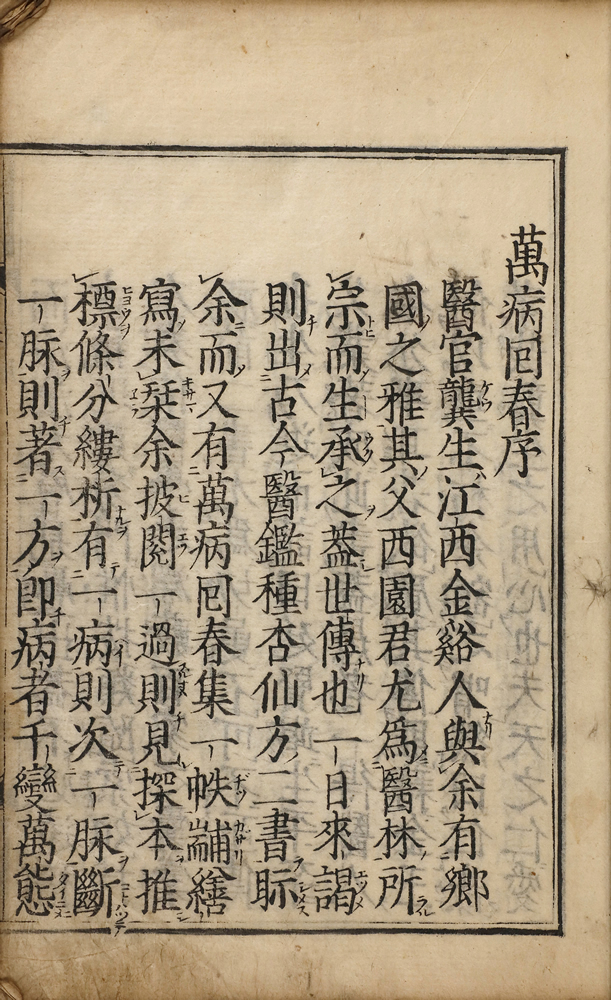 萬病回春序
醫官龔生江西金谿人與余有鄉
國之雅其父西園君尤為醫林所
宗而生承之蓋世傳也一日來謁
則出古今醫鑑種杏仙方二書眎
余而又有萬病回春集一帙黼繕
寫未栞余披閱一過則見探本推
標條分縷析有一病則次一脉斷
一脉則著一方即病者千變萬態